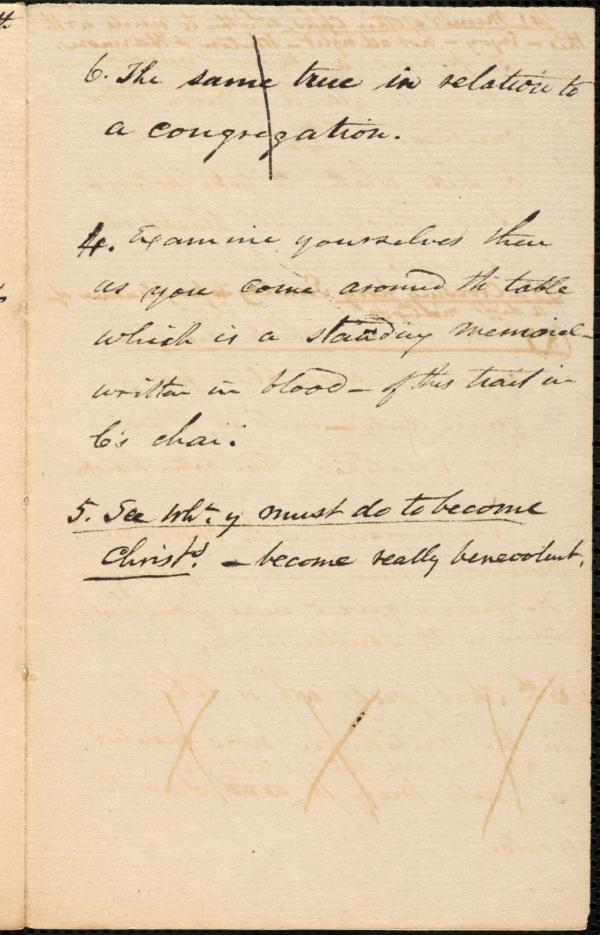 6. The same true in relation to
a congregation.
4. Examine yourselves then
as you come around th table
which is a standing memorial
written in blood – of this trait in
C's chai:
5. See wht. y must do to become
Christs. – become really benevolent.